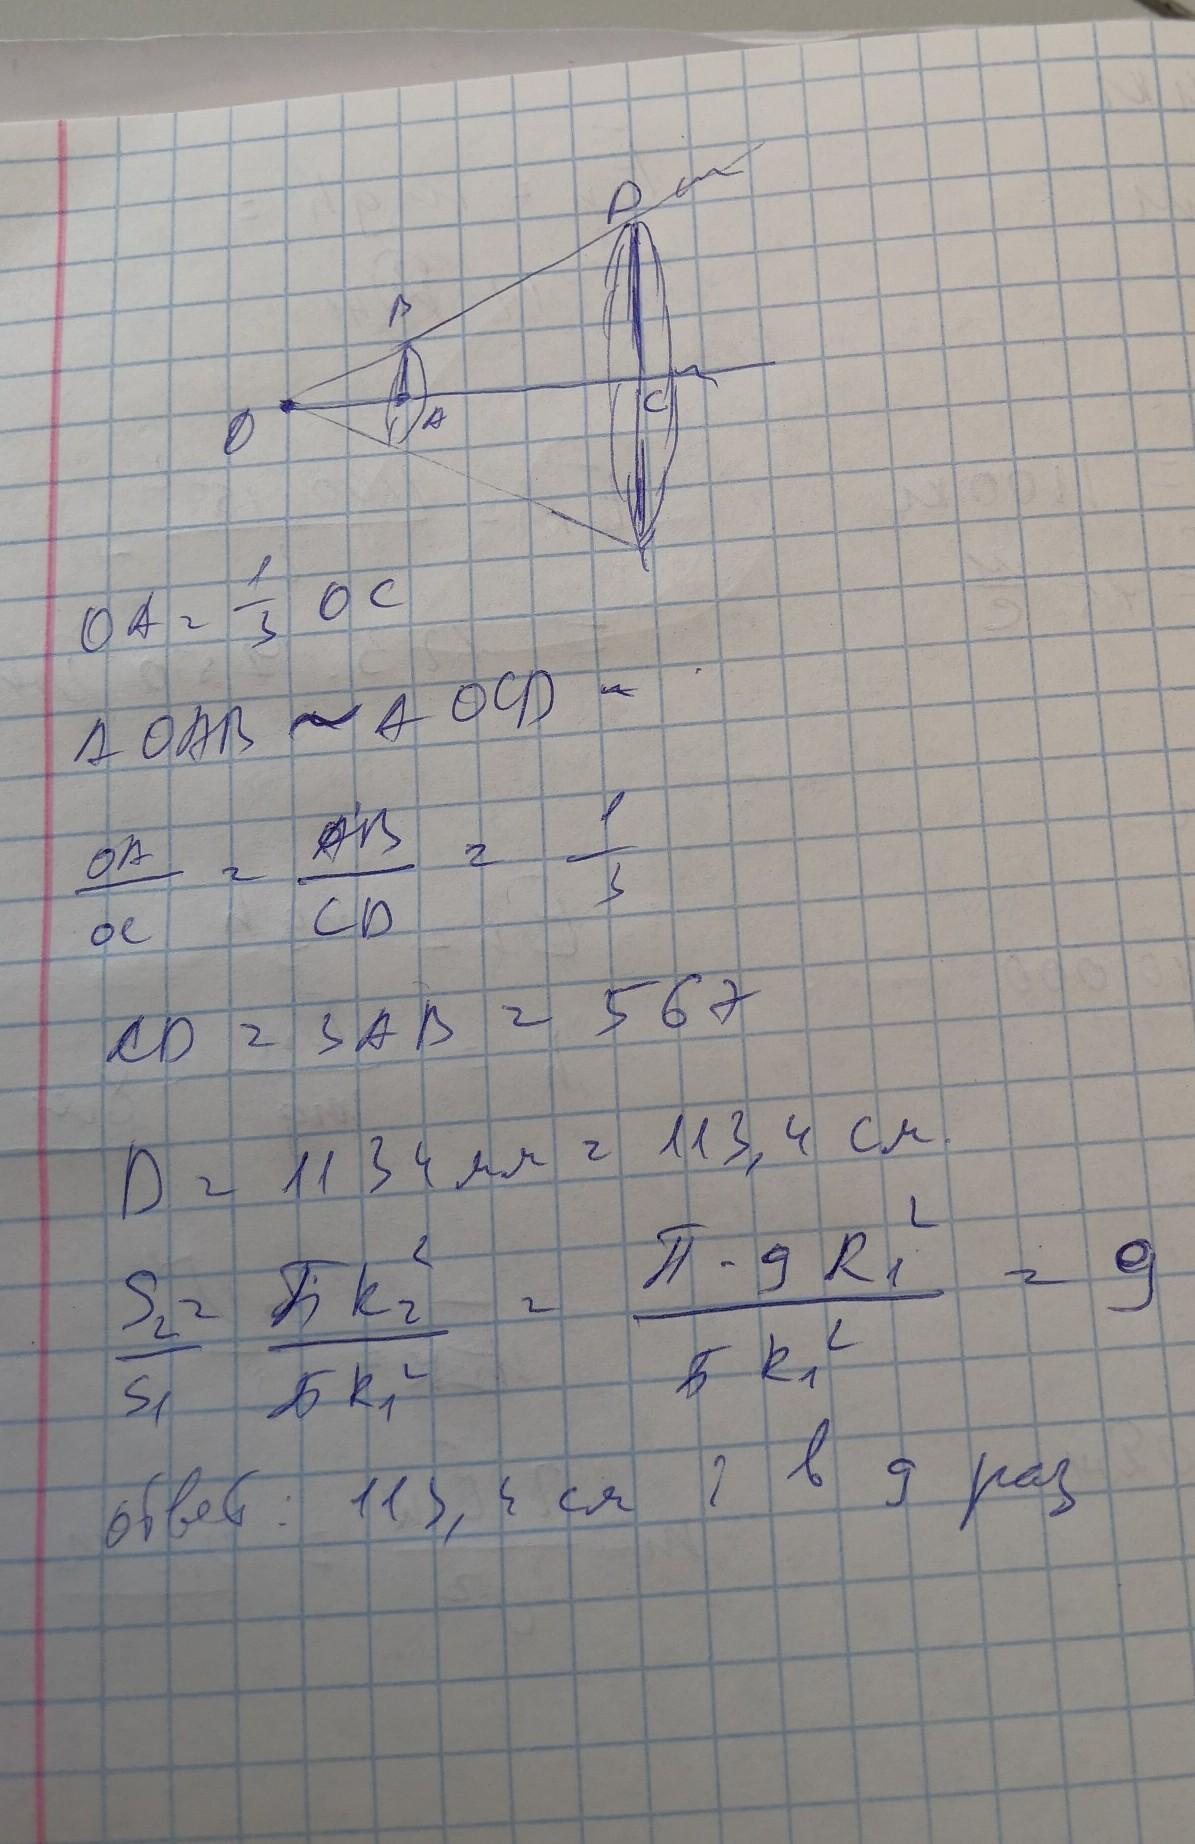 D
B
O
A
C
OA = 1/3 OC
Δ OAB ~ Δ OCD
OA/OC = AB/CD = 1/3
CD = 3AB = 567
D = 1134 мм = 113,4 см.
S₂/S₁ = πR₂²/πR₁² = π·9R₁²/πR₁² = 9
ответ: 113,4 см ; в 9 раз